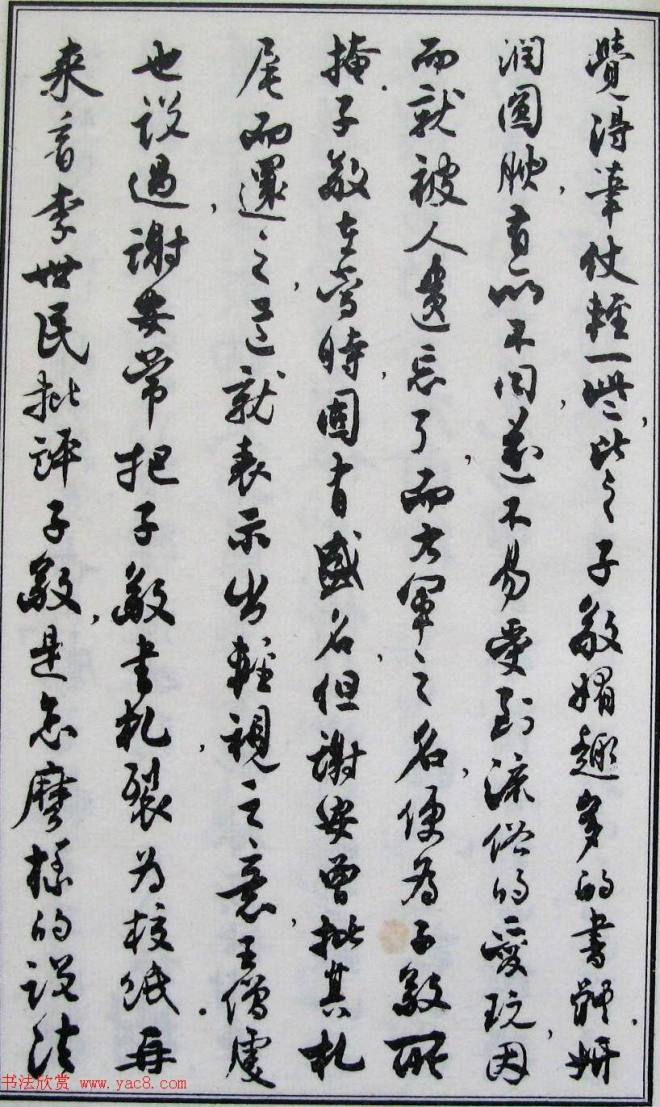 覺得筆仗輕一些，比之子敬媚趣多的書體，妍
潤圓腴，有所不同，遂不易受到流俗的愛玩，因
而就被人遺忘了，而右軍之名，便為子敬所
掩。子敬在當時，固有盛名，但謝安曾批其札
尾而還之，這就表示出輕視之意，王僧虔
也說過，謝安常把子敬書札裂為校紙。再
來看李世民批評子敬，是怎麼樣的說法
书法欣赏 www.yac8.com